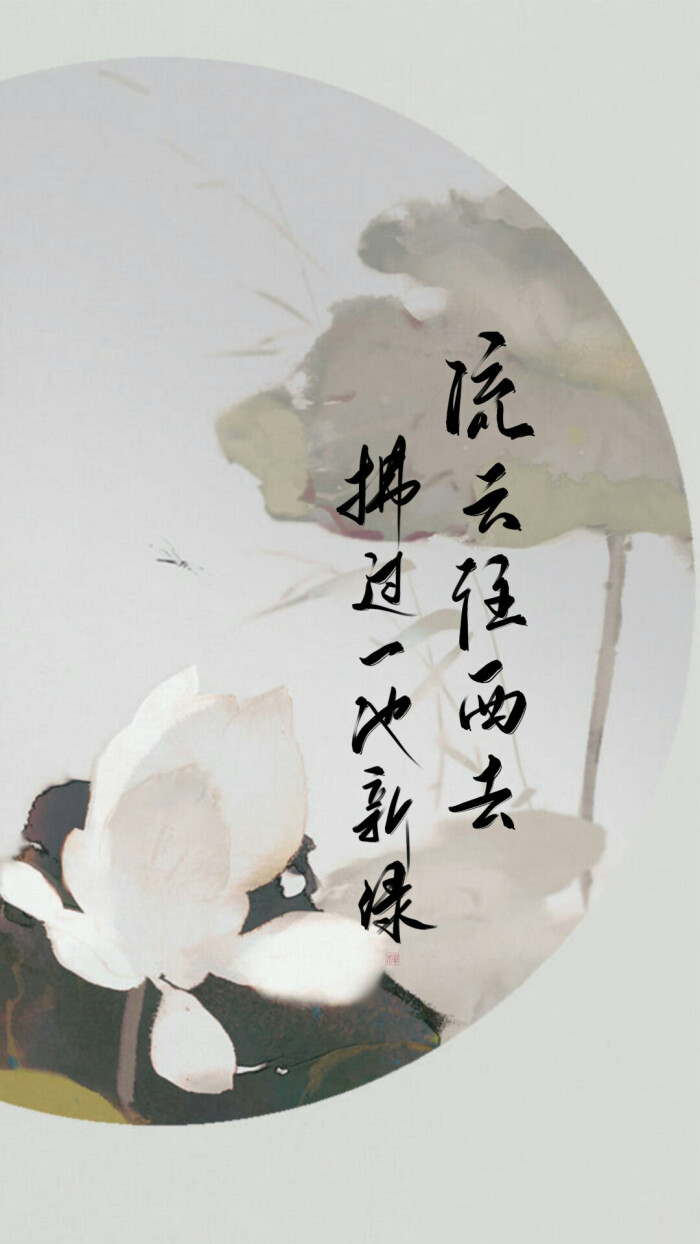 流云往西去
拂过一池新绿